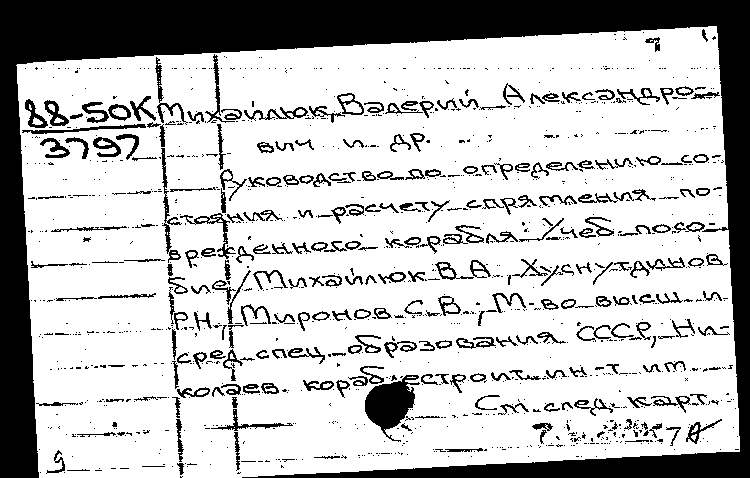 88-50К Михайлюк, Валерий Александро-
3797 вич и др.
Руководство по определению со-
стояния и расчету спрямления по-
врежденного корабля: Учеб. посо-
бие/Михайлюк В.А., Хуснутдинов
Р.Н., Миронов С.В.; М-во высш. и
сред. спец. образования СССР, Ни-
колаев. кораблестроит. ин-т им.
См. след. карт.
9